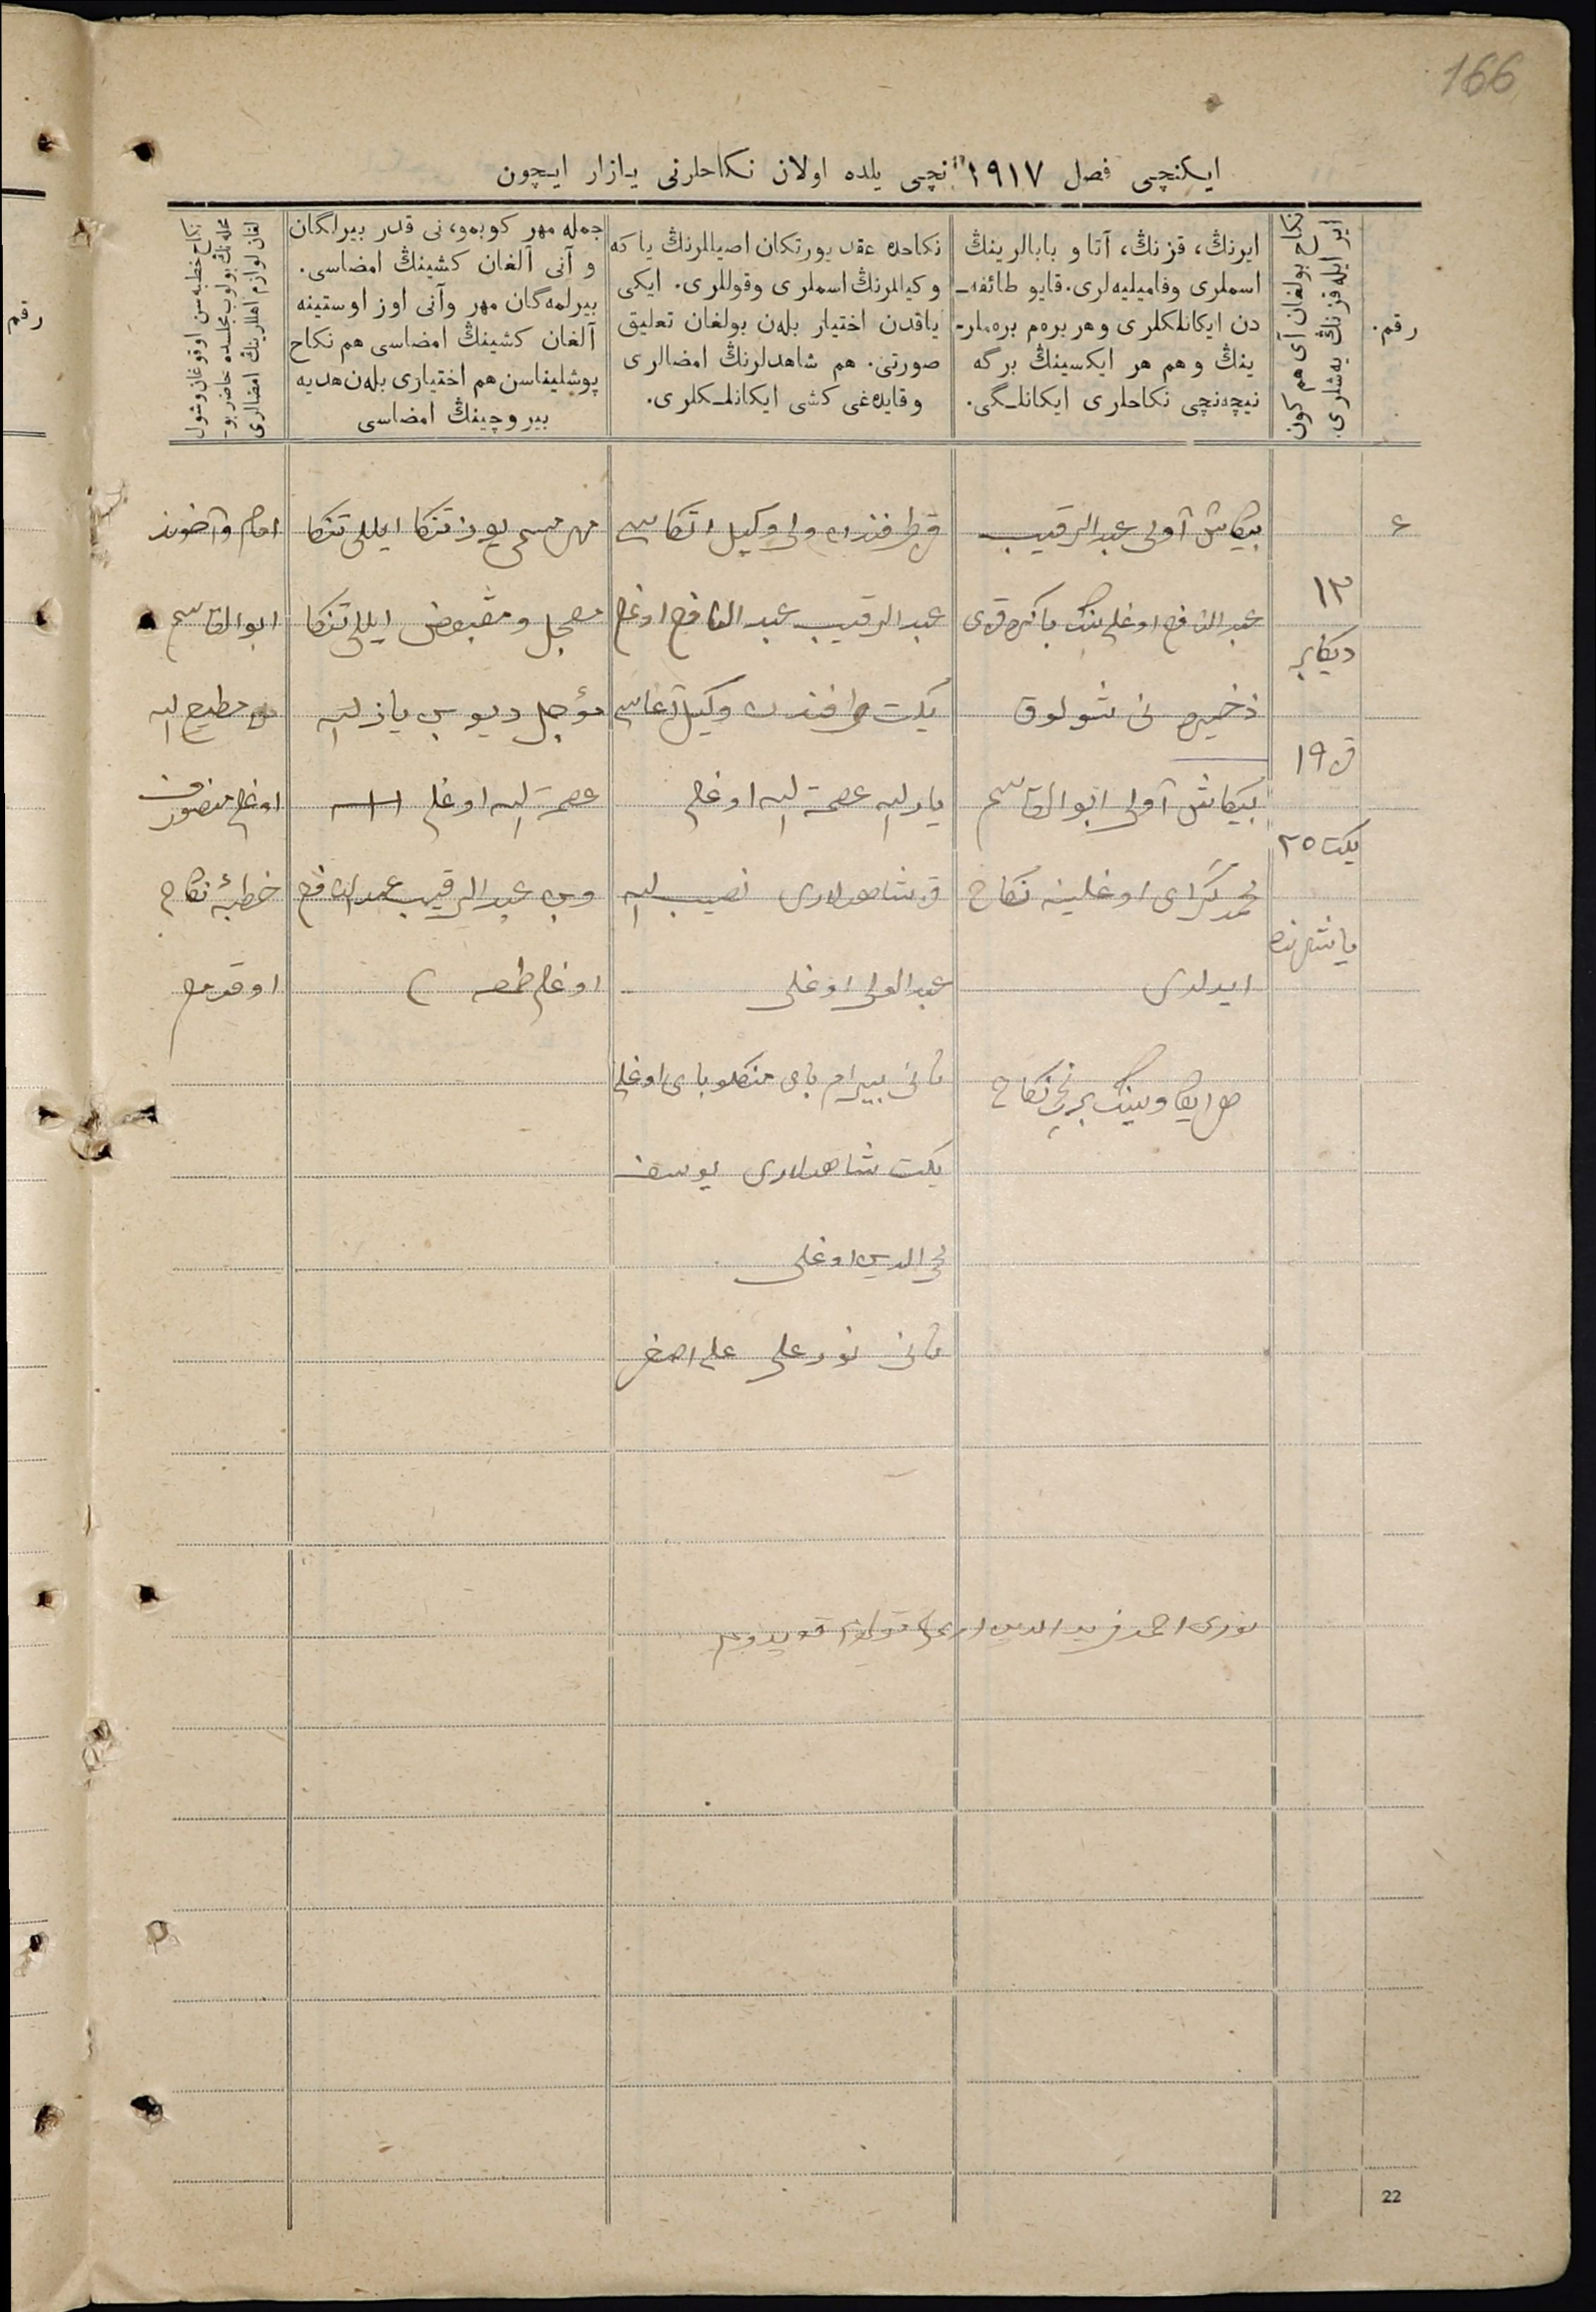 166
ایکنچی فصل ۱۹۱۷ نچی یلده اولان نکاحلرنی یازار ایچون
رقم
رقم.
نکاح بولغان آی هم کون
ایر ایله قزنڭ یه‌شلری.
ایرنڭ، قزنڭ، آتا و بابالرینڭ
اسملری وفامیلیه‌لری. قایو طائفه‌ـ
دن ایکانلکلری وهر بره‌م بره‌ملرـ
ینڭ وهم هر ایکسینڭ برگه
نیچه‌نچی نکاحلری ایکانلـگی.
نکاحده عقد یورتکان اصیللرنڭ یا که
وکیللرنڭ اسملری وقوللری. ایکی
یاقدن اختیار بله‌ن بولغان تعلیق
صورتی. هم شاهدلرنڭ امضالری
وقایده‌غی کشی ایکانلـکلری.
جمله مهر کوبمو، نی قدر بیرلگان
و آنی آلغان کشینڭ امضاسی.
بیرلمه‌گان مهر وآنی اوز اوستینه
آلغان کشینڭ امضاسی هم نکاح
پوشلیناسن هم اختیاری بله‌ن هدیه
بیروچینڭ امضاسی
نکاح خطبه‌سن اوقوغان وشول
محله‌نڭ بولوب مجلسده حاضر بوـ
لغان لوازم اهللرینڭ امضالری
۴
۱۲
دیکابر
ق ۱۹
یکت ۲۵
یاشنده
بیکاش آولی عبدالرقیب
عبدالنافع اوغلی ننڭ باکره قزی
ذخیره نی شولوق
بیکاش آولی ابوالقاسم
محمدگرای اوغلینه نکاح
ایدلدی
هر ایکاوینڭ برنچی نکاح
قز طرفندن ولی وکیل اتکاسی
عبدالرقیب عبدالنافع اوغلی
یکت طرفندن وکیل آغاسی
یارلله عصمة الله اوغلی
قز شاهدلاری نصیب الله
عبدالولی اوغلی
ثانی بیرام بای منکلوبای اوغلی
یکت شاهدلاری یوسف
محی الدین اوغلی
ثانی نورعلی علی اصغر
مهر مسمی یوز تنکا ایللی تنکا
معجل و مقبوض ایللی تنکا
مؤجل دیوب یازلدی
عصمة الله اوغلی
ومن عبدالرقیب عبدالنافع
اوغلی طمعه
امام وآخوند
ابوالقاسم
مطیع الله
اوغلی منصورف
خطبهٔ نکاح
اوقودم
نوری احمد فریدالدین
قولم قویدوم
22